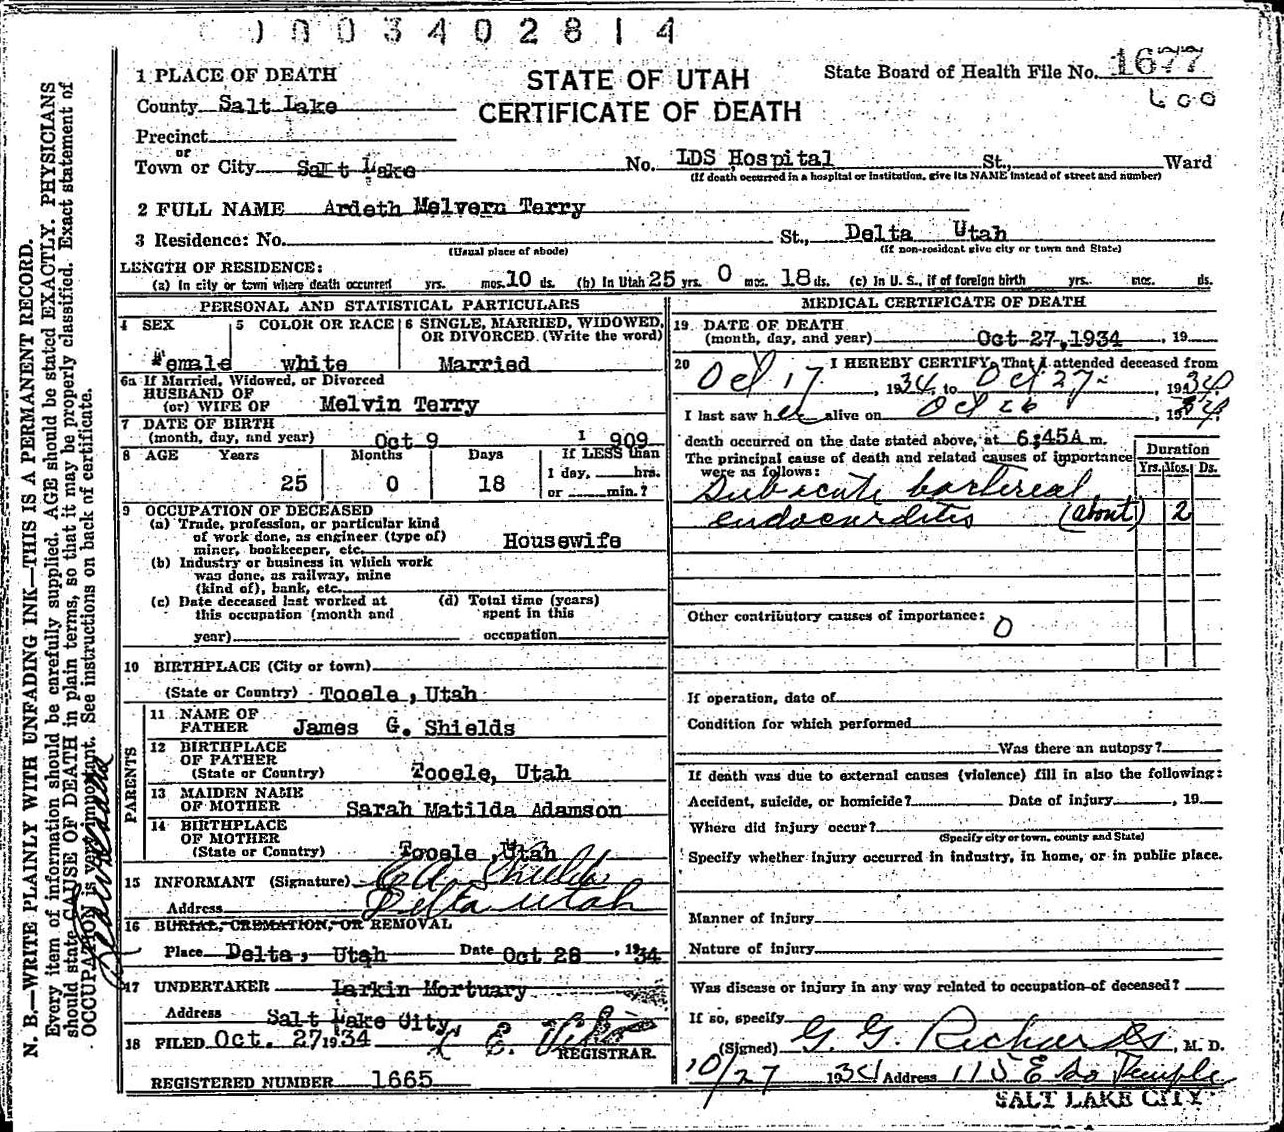 0003402814
1 PLACE OF DEATH
STATE OF UTAH
CERTIFICATE OF DEATH
State Board of Health File No. 1677
600
County Salt Lake
Precinct
or
Town or City Salt Lake No. LDS Hospital St., Ward
(If death occurred in a hospital or institution, give its NAME instead of street and number)
2 FULL NAME Ardeth Melvern Terry
3 Residence: No. St., Delta Utah
(Usual place of abode) (If non-resident give city or town and State)
LENGTH OF RESIDENCE:
(a) In city or town where death occurred yrs. mos. 10 ds. (b) In Utah 25 yrs. 0 mos. 18 ds. (c) In U. S., if of foreign birth yrs. mos. ds.
PERSONAL AND STATISTICAL PARTICULARS
4 SEX 5 COLOR OR RACE 6 SINGLE, MARRIED, WIDOWED,
OR DIVORCED (Write the word)
Female white Married
6a If Married, Widowed, or Divorced
HUSBAND OF
(or) WIFE OF Melvin Terry
7 DATE OF BIRTH
(month, day, and year) Oct 9 1 909
8 AGE Years Months Days If LESS than
1 day, hrs.
25 0 18 or min.?
9 OCCUPATION OF DECEASED
(a) Trade, profession, or particular kind
of work done, as engineer (type of)
miner, bookkeeper, etc. Housewife
(b) Industry or business in which work
was done, as railway, mine
(kind of), bank, etc.
(c) Date deceased last worked at (d) Total time (years)
this occupation (month and spent in this
year) occupation
10 BIRTHPLACE (City or town)
(State or Country) Tooele, Utah
PARENTS
11 NAME OF
FATHER James G. Shields
12 BIRTHPLACE
OF FATHER
(State or Country) Tooele, Utah
13 MAIDEN NAME
OF MOTHER Sarah Matilda Adamson
14 BIRTHPLACE
OF MOTHER
(State or Country) Tooele, Utah
15 INFORMANT (Signature) Shields
Address Delta Utah
16 BURIAL, CREMATION, OR REMOVAL
Place Delta, Utah Date Oct 28, 1934
17 UNDERTAKER Larkin Mortuary
Address Salt Lake City,
18 FILED Oct. 27 1934
REGISTRAR.
REGISTERED NUMBER 1665
MEDICAL CERTIFICATE OF DEATH
19 DATE OF DEATH
(month, day, and year) Oct 27, 1934, 19
20 I HEREBY CERTIFY, That I attended deceased from
Oct 17, 1934 to Oct 27 1934
I last saw her alive on Oct 26 1934
death occurred on the date stated above, at 6:45A m.
The principal cause of death and related causes of importance
were as follows:
Duration
Yrs. Mos. Ds.
Subacute bacterial
endocarditis (about) 2
Other contributory causes of importance:
0
If operation, date of
Condition for which performed
Was there an autopsy?
If death was due to external causes (violence) fill in also the following:
Accident, suicide, or homicide? Date of injury , 19
Where did injury occur?
(Specify city or town, county and State)
Specify whether injury occurred in industry, in home, or in public place.
Manner of Injury
Nature of Injury
Was disease or injury in any way related to occupation of deceased?
If so, specify
(Signed) G. G. Richards, M. D.
10/27 1934 Address 115 E So Temple
SALT LAKE CITY
N. B.—WRITE PLAINLY WITH UNFADING INK—THIS IS A PERMANENT RECORD.
Every item of information should be carefully supplied. AGE should be stated EXACTLY. PHYSICIANS
should state CAUSE OF DEATH in plain terms, so that it may be properly classified. Exact statement of
OCCUPATION is very important. See instructions on back of certificate.